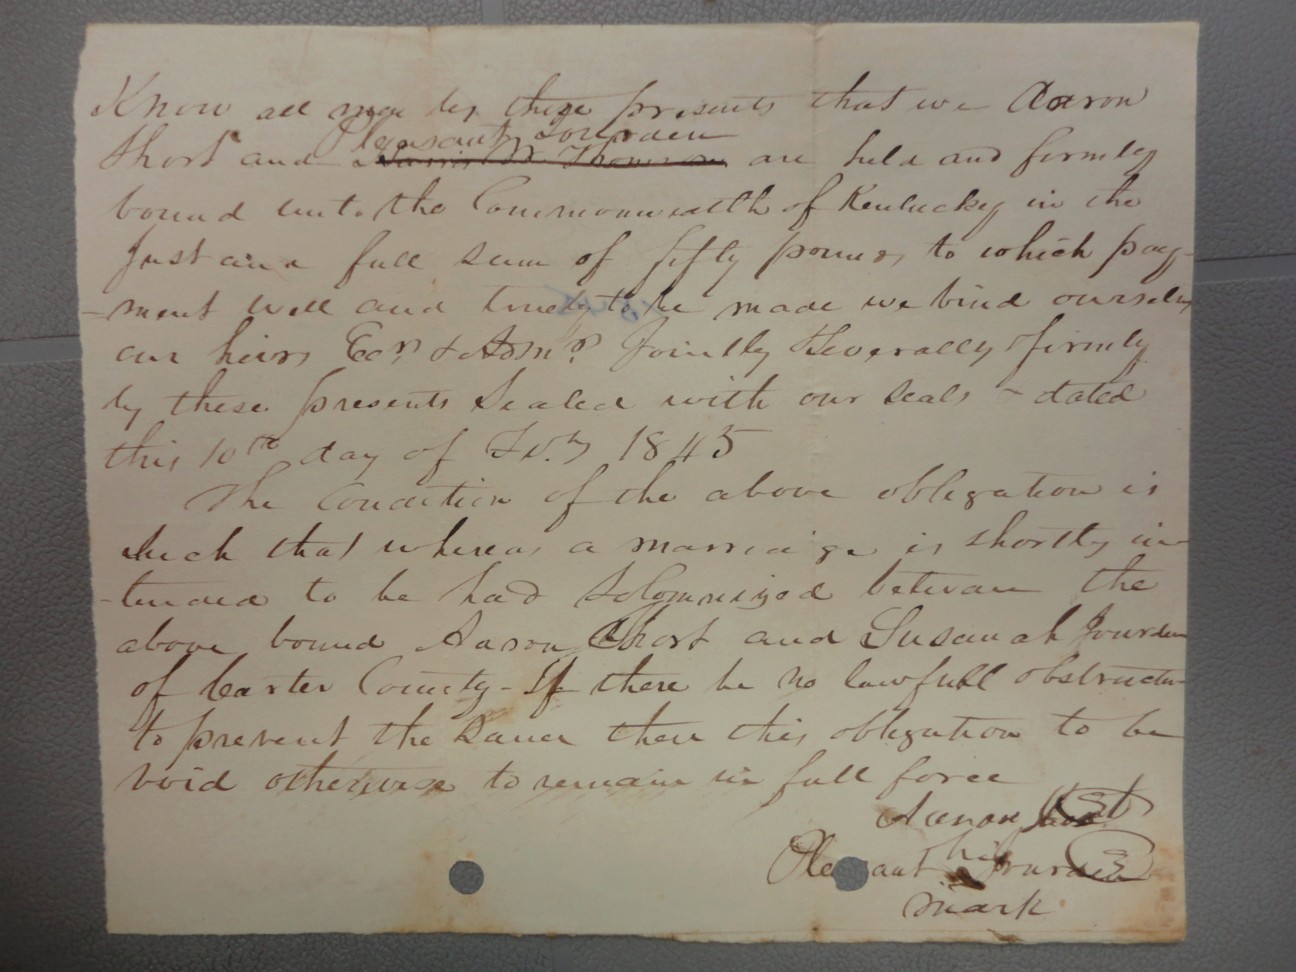 Know all men by these presents that we Aaron
Pleasant Jourden
Short and are held and firmly
bound unto the Commonwealth of Kentucky in the
Just and full sum of fifty pounds, to which pay-
-ment well and truely to be made we bind ourselves
our heirs Ecrs & Admrs Jointly & Severally & firmly
by these presents Sealed with our seals & dated
this 10th day of Feb.y 1845
The Condition of the above obligation is
such that whereas a marriage is shortly in
-tended to be had & Solomnized between the
above bound Aaron Short and Susanah Jourden
of Carter County - If there be no lawfull obstruction
to prevent the Same then this obligation to be
void otherwise to remain in full force
Aaron Short
his
Pleasant Jourden
mark